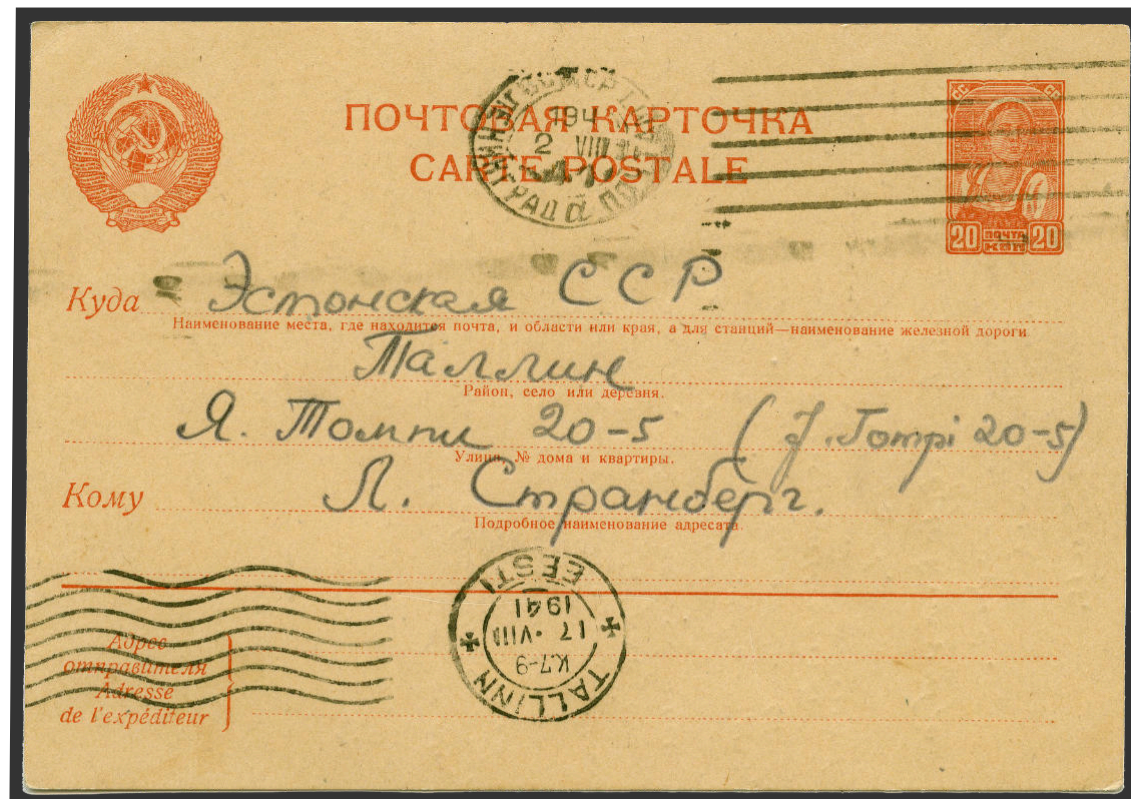 ПОЧТОВАЯ КАРТОЧКА
CARTE POSTALE
194
2 VIII
ЛЕНИНГРАД
СС СС
20 ПОЧТА КОП 20
Куда Эстонская ССР
Наименование места, где находится почта, и области или края, а для станций—наименование железной дороги
Таллин
Район, село или деревня.
Я. Томпи 20-5 (J. Tompi 20-5)
Улица, № дома и квартиры.
Кому Л. Странберг.
Подробное наименование адресата.
EESTI
1941
17 · VIII
K7-9
TALLINN
Адрес
отправителя
Adresse
de l'expéditeur